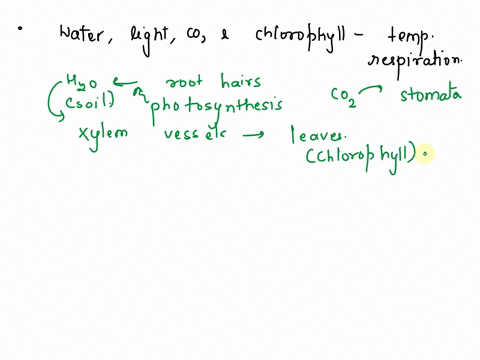 • Water, light, CO2 & chlorophyll - temp.
respiration.
H2O ← root hairs
(soil) photosynthesis
CO2 → stomata
xylem vessels → leaves.
(chlorophyll)